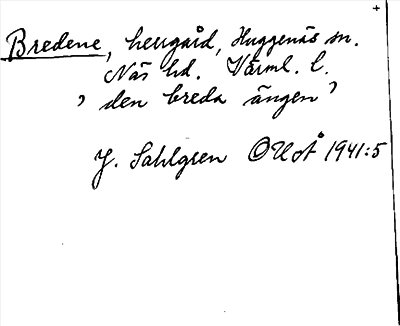 +
Bredene, herrgård, Huggenäs sn.
Näs hd. Värml. l.
’den breda ängen’
J. Sahlgren OUoÅ 1941:5